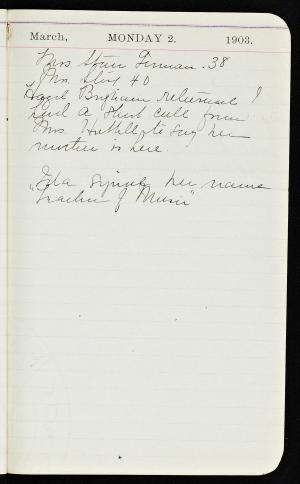 March, MONDAY 2. 1903.
Mrs. Starr Firman .38
Mrs. 40
Hazel Brigham returned I
had a short call from
Mrs. to say her
mother is here.
Ida signed her name
"Teacher of Music"